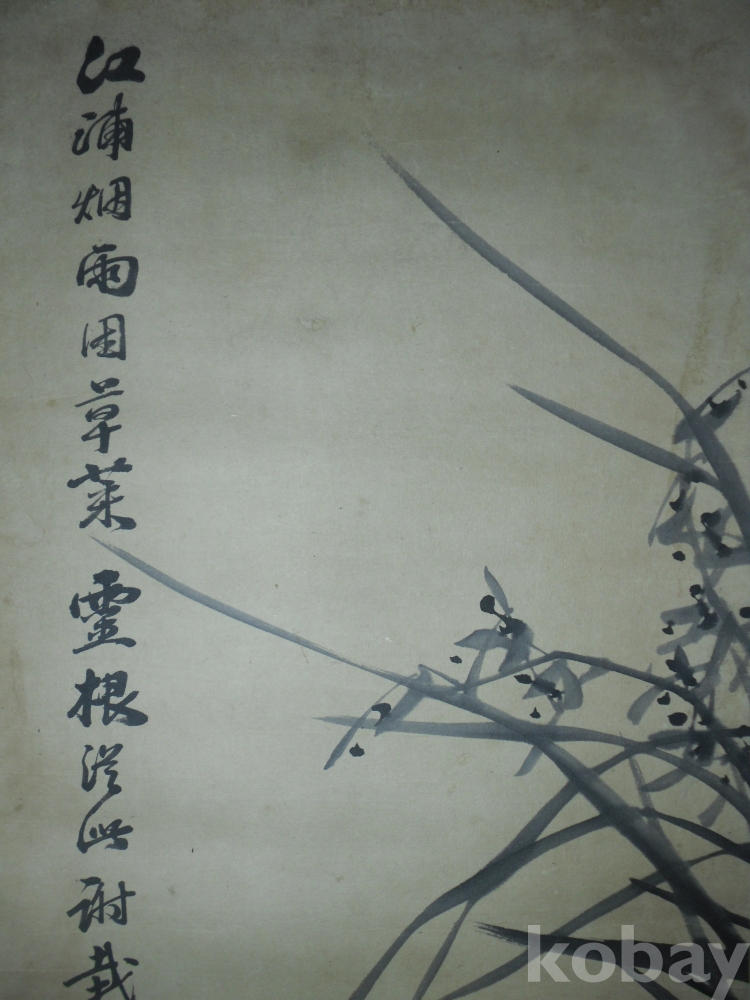 江浦烟雨困草菜靈根從此謝栽
kobay